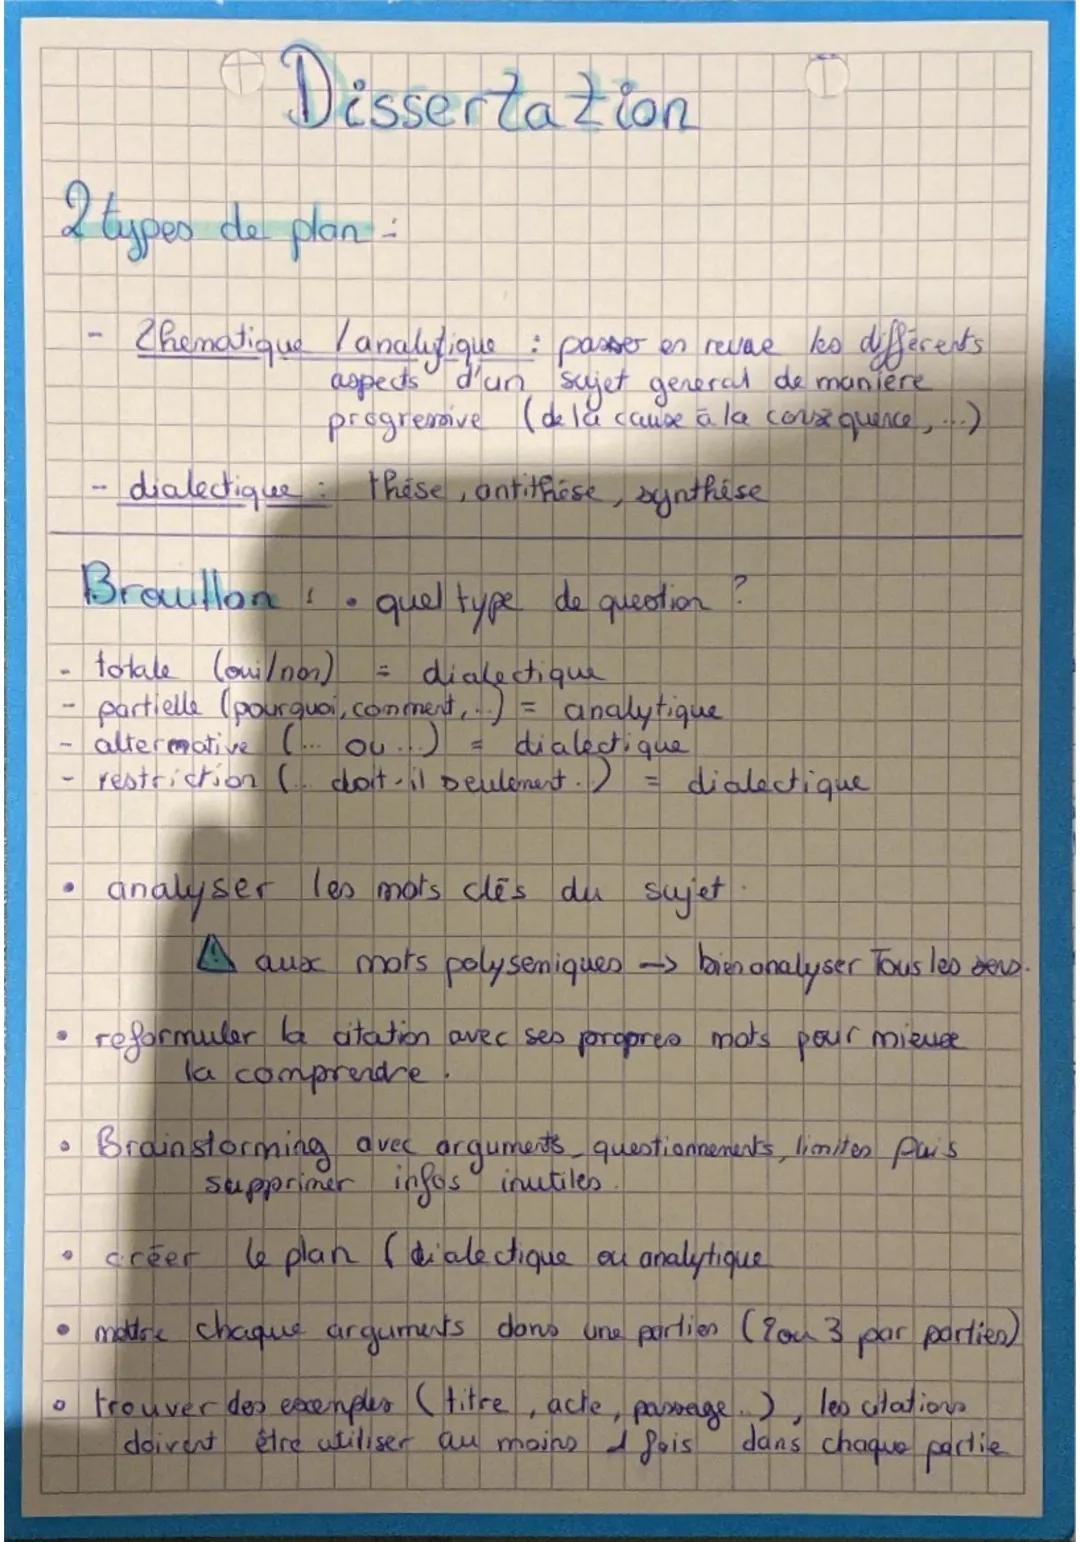 Dissertation
2 types de plan :
- Thematique / analytique : passer en revue les différents
aspects d'un sujet general de manière
progressive (de la cause à la conséquence, ...)
- dialectique : thèse, antithèse, synthèse
Brouillon : • quel type de question ?
- totale (oui/non) = dialectique
- partielle (pourquoi, comment, ...) = analytique
- alternative (... ou ...) = dialectique
- restriction (... doit-il seulement ...) = dialectique
• analyser les mots clés du sujet.
⚠ aux mots polysemiques → bien analyser Tous les sens.
• reformuler la citation avec ses propres mots pour mieux
la comprendre.
• Brainstorming avec arguments, questionnements, limites puis
supprimer infos inutiles.
• créer le plan (dialectique ou analytique
• mettre chaque arguments dans une parties (2 ou 3 par parties)
• trouver des exemples (titre, acte, passage...), les citations
doivent être utiliser au moins 1 fois dans chaque partie